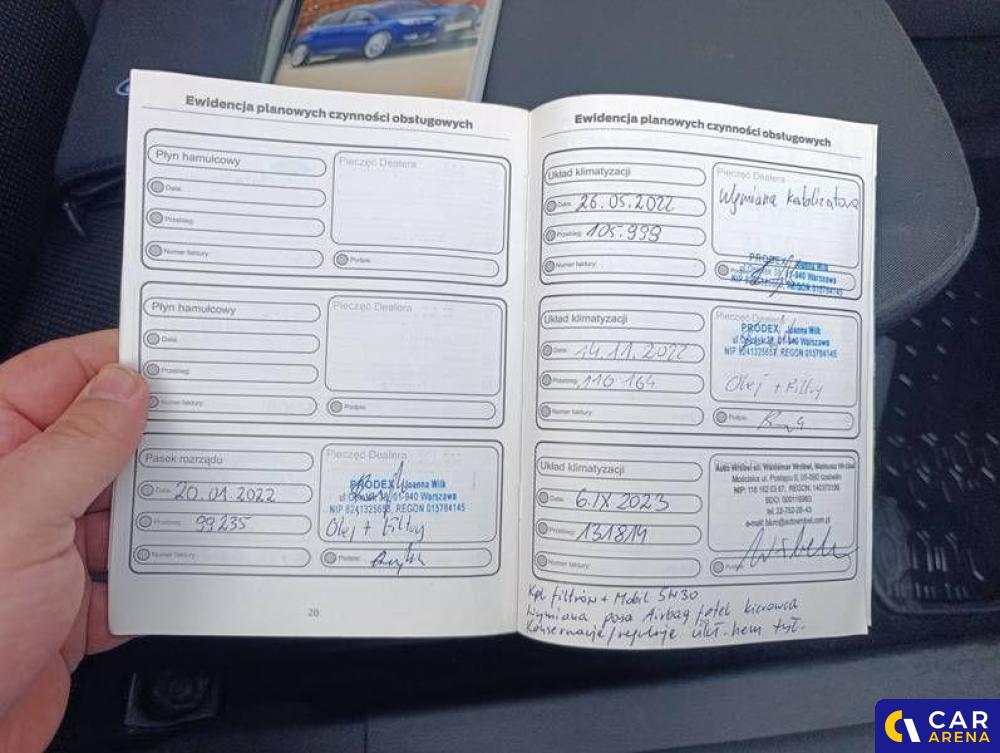 Ewidencja planowych czynności obsługowych
Płyn hamulcowy
Pieczęć Dealera
Data:
Przebieg:
Numer faktury:
Podpis:
Płyn hamulcowy
Pieczęć Dealera
Data:
Przebieg:
Numer faktury:
Podpis:
Pasek rozrządu
Pieczęć Dealera
Data: 20.01.2022
PRODEX Joanna Wilk
01-940 Warszawa
NIP REGON 015784145
Przebieg: 99235
Olej + Filtry
Numer faktury:
Podpis:
20
Ewidencja planowych czynności obsługowych
Układ klimatyzacji
Pieczęć Dealera
Wymiana
Data: 26.05.2022
Przebieg: 105.999
Numer faktury:
PRODEX Joanna Wilk
01-940 Warszawa
NIP REGON 015784145
Układ klimatyzacji
Pieczęć Dealera
PRODEX Joanna Wilk
01-940 Warszawa
NIP REGON 015784145
Data: 14.11.2022
Przebieg: 116 164
Olej + Filtry
Numer faktury:
Podpis:
Układ klimatyzacji
Data: 6.IX 2023
Przebieg: 131814
Numer faktury:
Auto Wróbel s.c. Waldemar Wróbel, Mateusz Wróbel
Mościska ul. Postępu 9, 05-080 Izabelin
NIP: 118 162 03 67; REGON: 140373199
tel. 22-752-28-43
e-mail: biuro@autowrobel.com.pl
Kpl filtrów + Mobil 5W30
Wymiana pasa Airbag fotel kierowca
ukł. hem tył.
CAR
ARENA